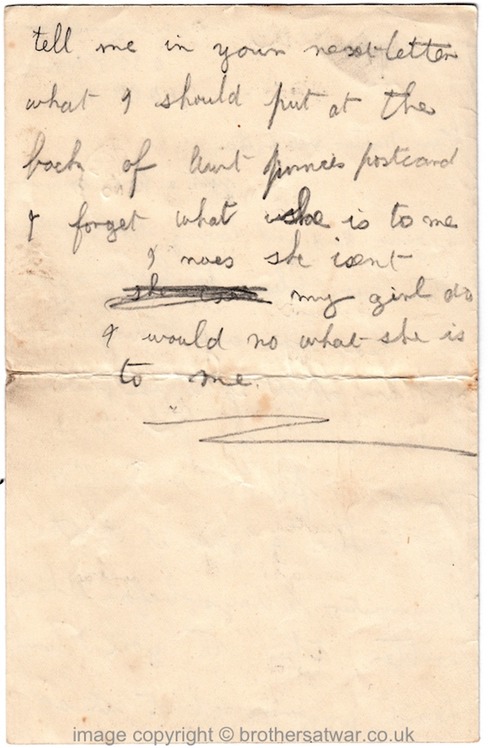 tell me in your next letter
what I should put at the
back of Aunt postcard
I forget what she is to me
I noes she isent
my girl do
I would no what she is
to me.
image copyright © brothersatwar.co.uk